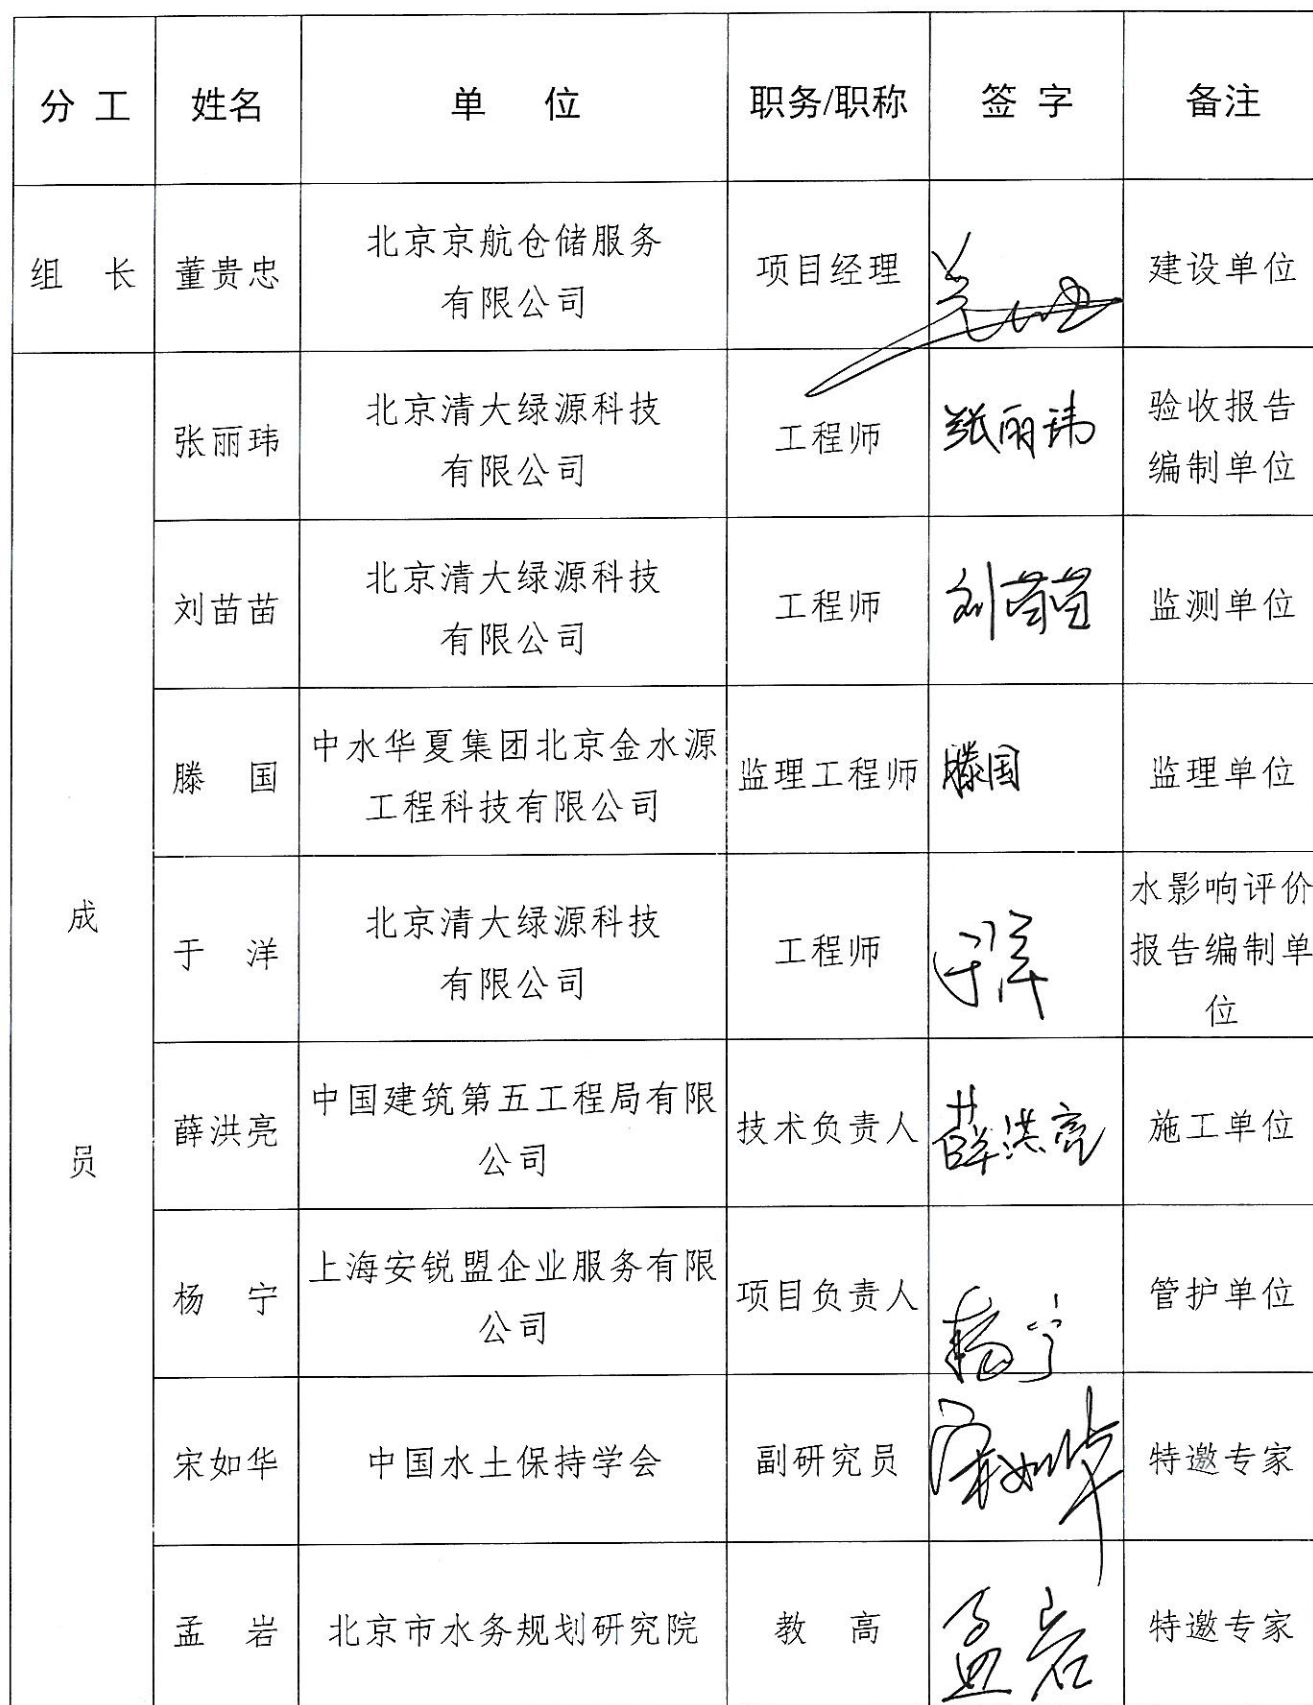 分 工 姓名 单 位 职务/职称 签 字 备注
组 长 董贵忠 北京京航仓储服务
有限公司 项目经理 建设单位
成
员
张丽玮 北京清大绿源科技
有限公司 工程师 张丽玮 验收报告
编制单位
刘苗苗 北京清大绿源科技
有限公司 工程师 刘苗苗 监测单位
滕 国 中水华夏集团北京金水源
工程科技有限公司 监理工程师 滕国 监理单位
于 洋 北京清大绿源科技
有限公司 工程师 于洋 水影响评价
报告编制单
位
薛洪亮 中国建筑第五工程局有限
公司 技术负责人 薛洪亮 施工单位
杨 宁 上海安锐盟企业服务有限
公司 项目负责人 杨宁 管护单位
宋如华 中国水土保持学会 副研究员 宋如华 特邀专家
孟 岩 北京市水务规划研究院 教 高 孟岩 特邀专家